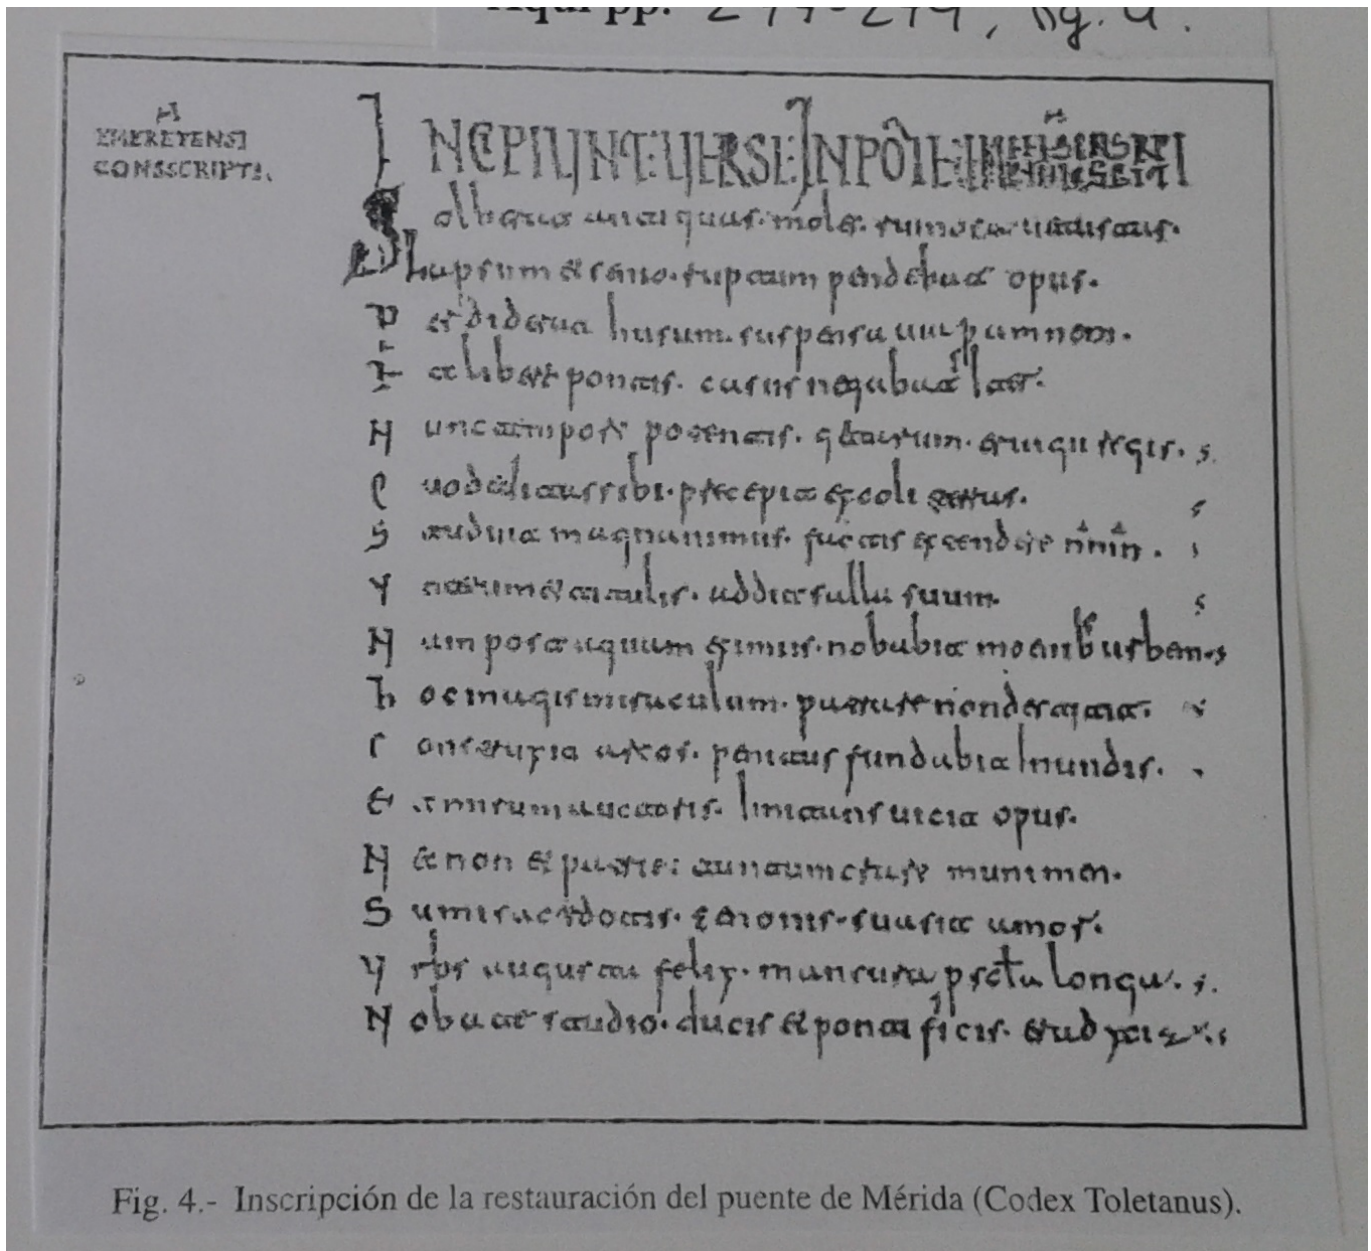 Aquí pp. 
EMERETENSI
CONSSCRIPTI.
INCIPIUNT UERSI IN PÔTE
Solberat antiquas moles ruinosa uetustas.
Lapsum et senio ruptum pendebat opus.
P erdiderat husum suspensa uia p amnem.
E t libert pontis casus negabat iter.
N unc tempore potentis getarum eruigii regis. s.
Q uod deditas sibi precepit excoli terras. s
S tuduit magnanimus factis extendere nmn. s
V eterum et titulis addit salla suum. s
N am postquam eximiis nobabit moenibus urbem. s
H oc magis miraculum patrare non destitit. s
C onstruxit arcos penitus fundabit in undis.
E t mirum auctoris imitans uicit opus.
N ec non et patrie tantum creare munimen.
S umi sacerdotis zenonis suasit amor.
V rbs augusta felix mansura p scla longa. s.
N obate studio ducis et pontificis.
Fig. 4.- Inscripción de la restauración del puente de Mérida (Codex Toletanus).